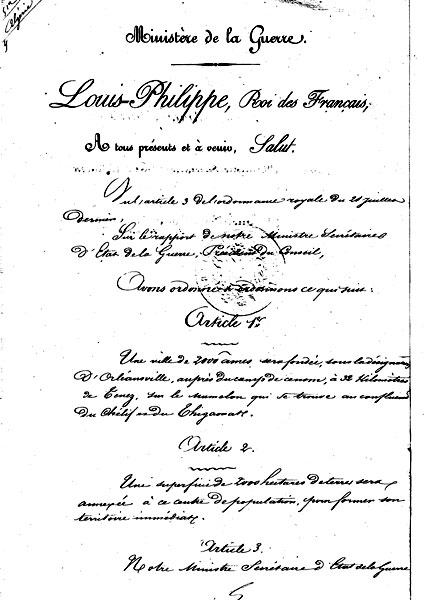 sur
Algérie
Ministère de la Guerre.
Louis-Philippe, Roi des Français,
A tous présents et à venir, Salut.
Vu l'article 3 de l'ordonnance royale du 21 juillet
dernier,
Sur le rapport de notre Ministre Secrétaire
d'Etat de la Guerre, Président du Conseil,
Avons ordonné et ordonnons ce qui suit:
Article 1er
Une ville de 2000 âmes sera fondée, sous la désignation
d'Orléansville, auprès du camp de ce nom, à 52 kilomètres
de Tenez, sur le mamelon qui se trouve au confluent
du Chélif et du Thigaout.
Article 2.
Une superficie de 2000 hectares de terre sera
annexée à ce centre de population, pour former son
territoire immédiat.
Article 3.
Notre Ministre Secrétaire d'Etat de la Guerre